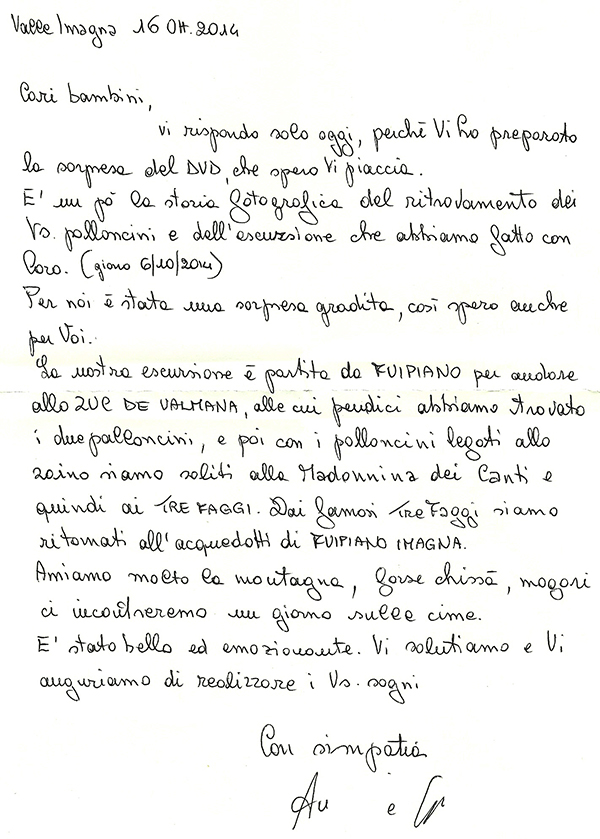 Valle Imagna 16 Ott. 2014
Cari bambini,
vi rispondo solo oggi, perchè Vi ho preparato
la sorpresa del DVD, che spero Vi piaccia.
E' un pò la storia fotografica del ritrovamento dei
Vs. palloncini e dell'escursione che abbiamo fatto con
loro. (giorno 6/10/2014)
Per noi è stata una sorpresa gradita, così spero anche
per Voi.
La nostra escursione è partita da FUIPIANO per andare
allo ZUC DE VALMANA, alle cui pendici abbiamo trovato
i due palloncini, e poi con i palloncini legati allo
zaino siamo saliti alla Madonnina dei Canti e
quindi ai TRE FAGGI. Dai famosi Tre Faggi siamo
ritornati all'acquedotti di FUIPIANO IMAGNA.
Amiamo molto la montagna, forse chissà, magari
ci incontreremo un giorno sulle cime.
E' stato bello ed emozionante. Vi salutiamo e Vi
auguriamo di realizzare i Vs. sogni
Con simpatia
Au e